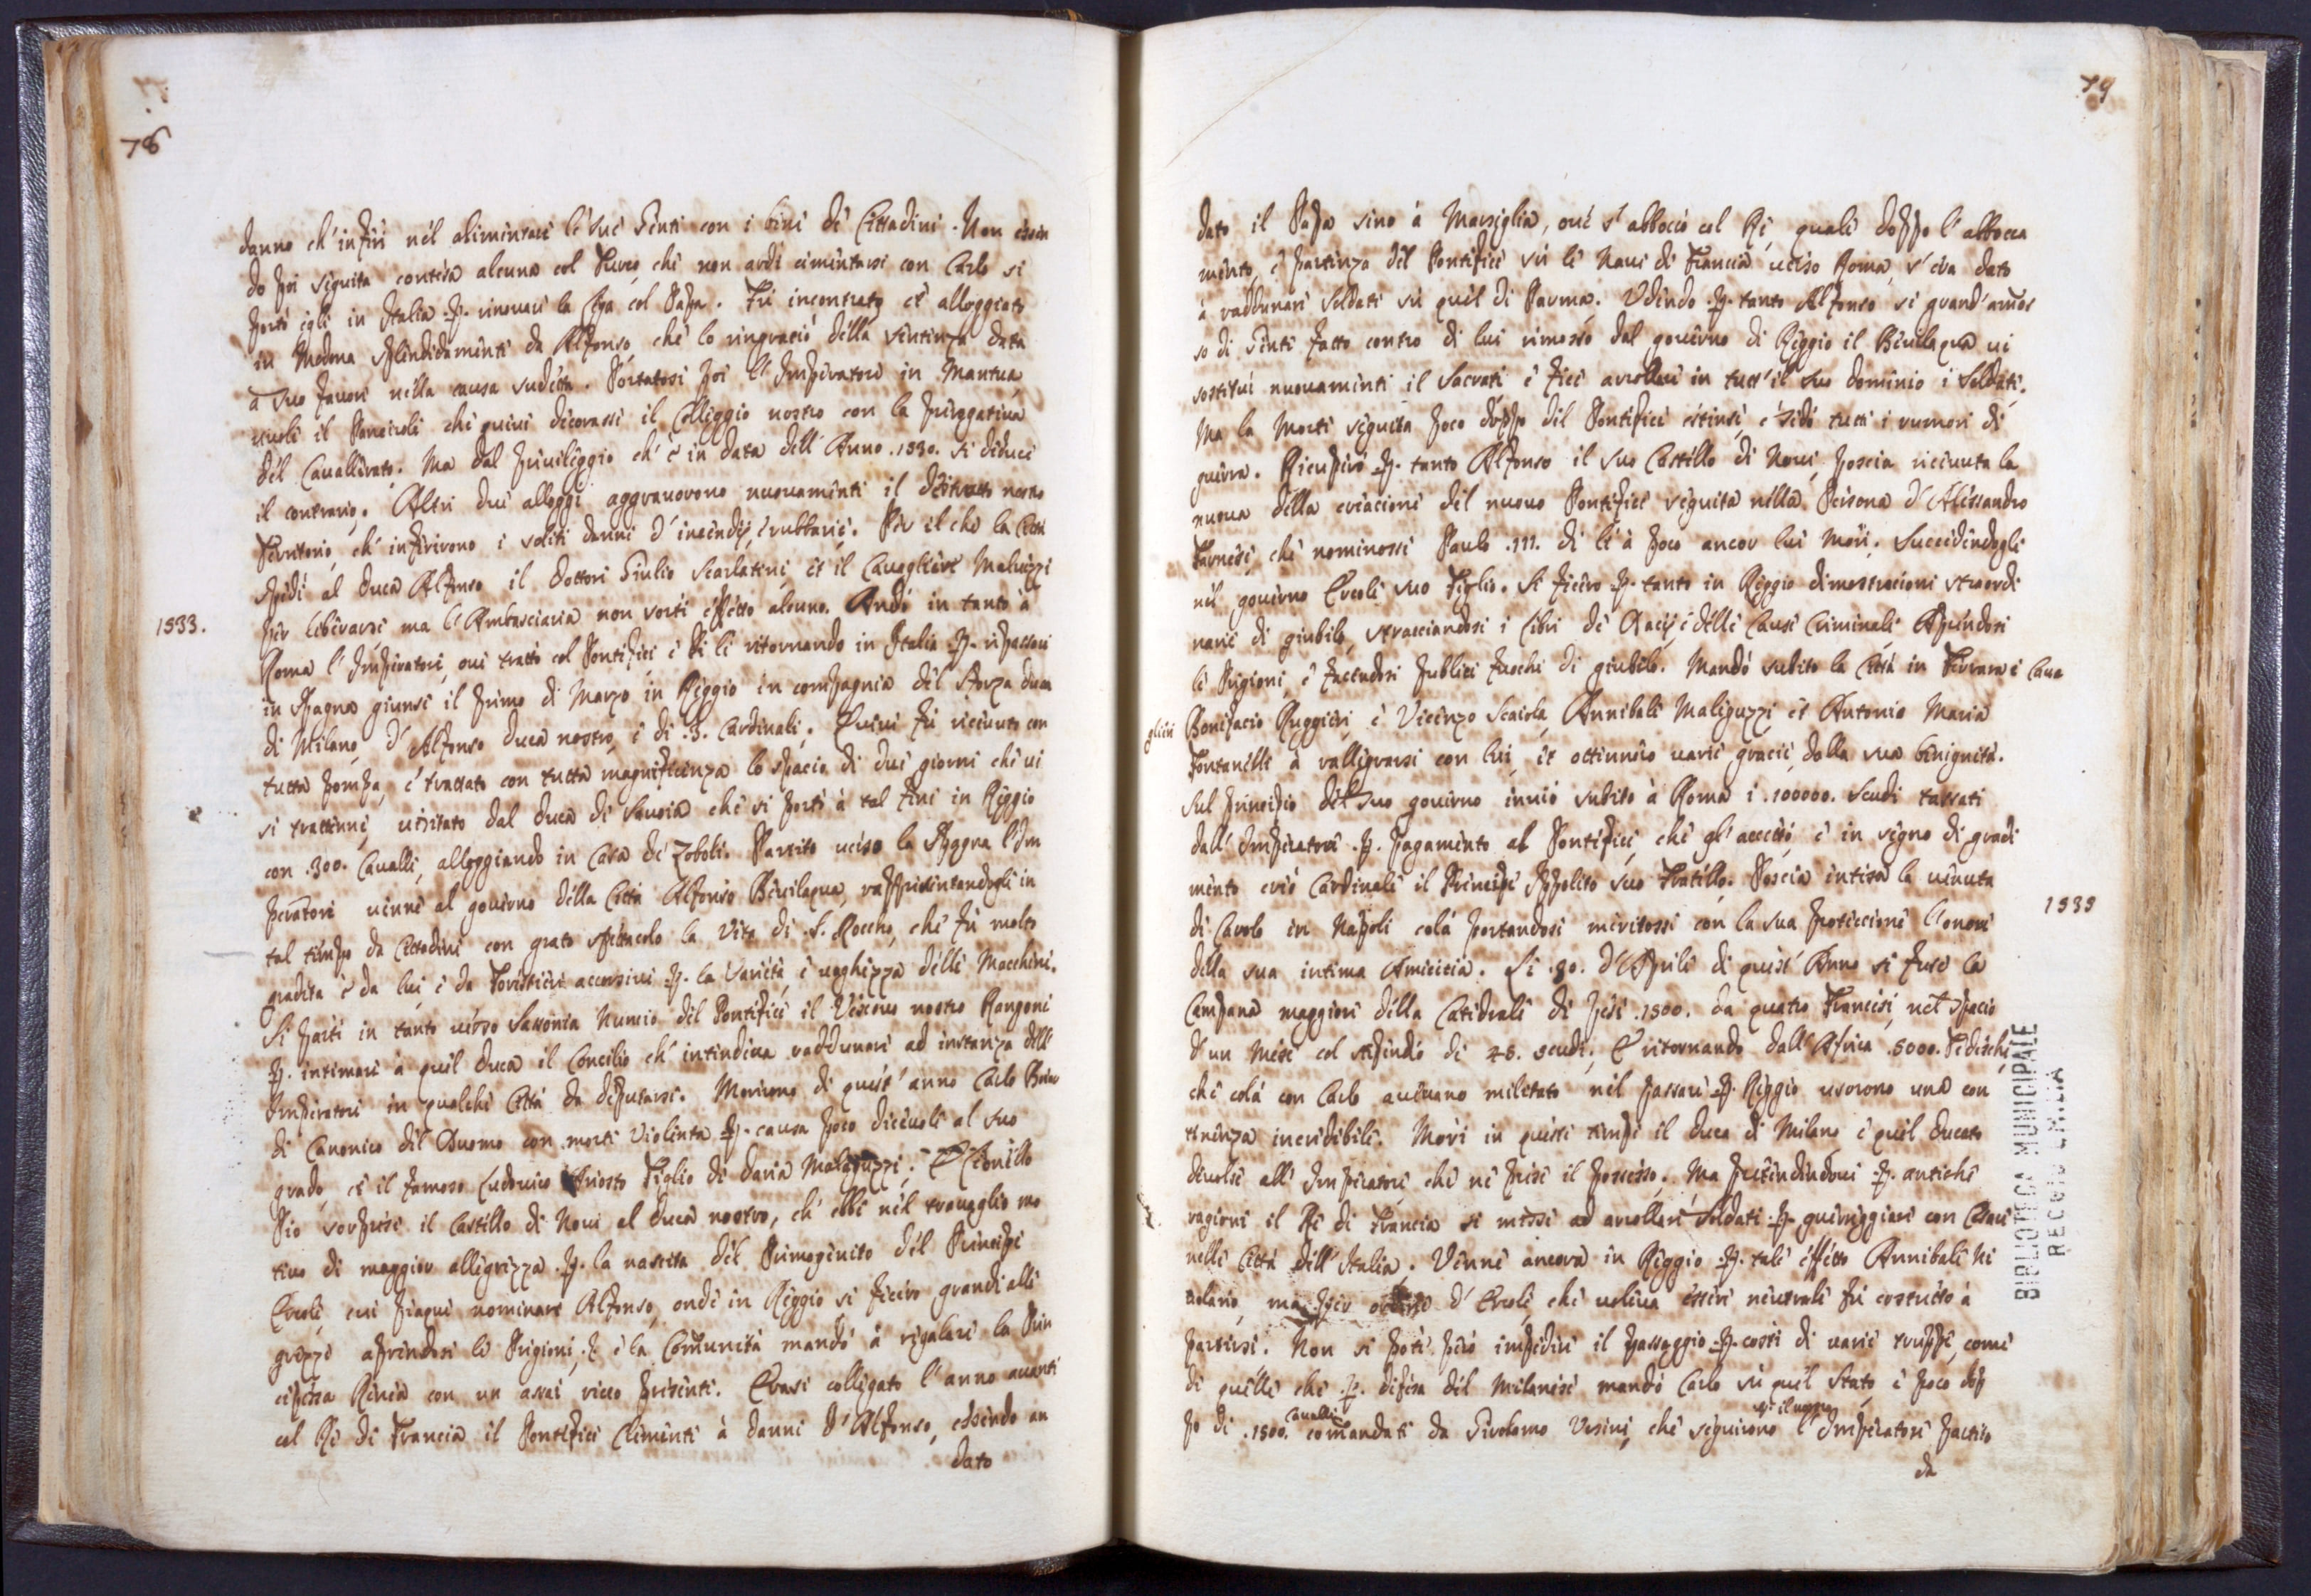 78
danno ch' inferì nel alimentare le sue Genti con i beni de Cittadini. Non essen
do poi seguita contesa alcuna col Turco che non ardì cimentarsi con Carlo si
portò egli in Italia p. rinovare la Lega col Papa. Fù incontrato et alloggiato
in Modena splendidamente da Alfonso, che lo ringratiò della sentenza data
à suo favore nella causa sudetta. Portatosi poi l' Imperatore in Mantua,
vuole il Panciroli che quivi decorasse il Colleggio nostro con la prerogativa
del Cavallierato. Ma dal privileggio ch' è in data dell' Anno .1530. si deduce
il contrario. Altri due alloggi aggravorono nuovamente il nostro
Territorio, ch' inferirono i soliti danni d' incendij, e rubbarie. Per il che la Città
spedì al Duca Alfonso il Dottore Giulio Scarlatini, et il Cavagliere Malvezzi
1533.
per liberarsi, ma l' Ambasciaria non sortì effetto alcuno. Andò in tanto à
Roma l' Imperatore, ove trattò col Pontefice, e di lì ritornando in Italia p. ripassare
in Spagna giunse il primo di Marzo in Reggio in compagnia del Sforza Duca
di Milano, d' Alfonso Duca nostro, e di .3. Cardinali. Quivi fù ricevuto con
tutta pompa, e trattato con tutta magnificenza lo spacio di due giorni che vi
si trattenne, visitato dal Duca di Savoia che si portò à tal fine in Reggio
con .300. Cavalli, alloggiando in Casa de Zoboli. Partito verso la Spagna l' Im
peratore venne al governo della Città Alfonso Bevilaqua, rappresentandogli in
tal tempo da Cittadini con grato spettacolo la Vita di S. Roccho, che fù molto
gradita e da lui, e da Forestieri accorsivi p. la Varietà, e vaghezza delle Machine.
Si partì in tanto verso Sassonia Nuncio del Pontefice il Vescovo nostro Rangoni
p. intimare à quel Duca il Concilio ch' intendeva raddunare ad instanza dell'
Imperatore in qualche Città da deputarsi. Morirono di quest' anno Carlo
di Canonico del Duomo con morte violenta p. causa poco dicevole al suo
grado, et il famoso Ludovico Ariosto Figlio di Daria Maleguzzi. E Leonello
Pio sorprese il Castello di Novi al Duca nostro, ch' ebbe nel travaglio mo
tivo di maggior allegrezza p. la nascita del Primogenito del Principe
Ercole, cui piaque nominare Alfonso, onde in Reggio si fecero grandi alle
grezze aprendosi le Prigioni, e la Comunità mandò à regalare la Prin
cipessa Renea con un assai ricco presente. Erasi collegato l' anno avanti
col Re di Francia il Pontefice Clemente à danni d' Alfonso, essendo an
dato
79
dato il Papa sino à Marsiglia, ove s' abboccò col Re, quale doppo l' abbocca
mento, e partenza del Pontefice sù le Navi di Francia verso Roma, s' era dato
à raddunare Soldati sù quel di Parma. Udendo p. tanto Alfonso sì grand' amas
so di Genti fatto contro di lui rimosso dal governo di Reggio il Bevilaqua vi
sostituì nuovamente il Sacrati e fece arrollare in tutt' il suo dominio i Soldati.
Ma la Morte seguita poco doppo del Pontefice estinse, e sedò tutti i rumori di
guerra. Ricuperò p. tanto Alfonso il suo Castello di Novi, poscia ricevuta la
nuova della creacione del nuovo Pontefice seguita nella Persona d' Alessandro
Farnese, che nominossi Paulo .III. di lì à poco ancor lui morì. Succedendogli
nel governo Ercole suo Figlio. Si fecero p. tanto in Reggio dimostracioni straordi
narie di giubilo, stracciandosi i Libri de Dacij, e delle Cause Criminali, Aprendosi
le Prigioni, e facendosi publici fuochi di giubilo. Mandò subito la Città in Ferrara i Cava
glieri Bonifacio Ruggieri, e Vicenzo Scaiola, Annibale Maleguzzi et Antonio Maria
Fontanelli à rallegrarsi con lui, et ottennero varie gracie dalla sua benignità.
Sul principio del suo governo inviò subito à Roma i .100000. Scudi tassati
dall' Imperatore p. pagamento al Pontefice che gl' accettò, e in segno di gradi
mento creò Cardinale il Principe Ippolito suo Fratello. Poscia intesa la venuta
1535
di Carolo in Napoli colà portandosi meritossi con la sua protteccione l' onore
della sua intima Amicicia. Li .30. d' Aprile di quest' Anno si fuse la
Campana maggiore della Catedrale di pesi .1500. da quatro Francesi nel spacio
d' un Mese col stipendio di 45. scudi. E ritornando dall' Africa .5000. Tedeschi,
che colà con Carlo avevano militato nel passare p. Reggio usorono una con
tinenza incredibile. Morì in questi tempi il Duca di Milano e quel Ducato
divolsè all' Imperatore che ne prese il possesso. Ma pretendendovi p. antiche
ragioni il Re di Francia si messe ad arrollare Soldati p. guerreggiare con Cesare
nelle Città dell' Italia. Venne ancora in Reggio p. tale effetto Annibale Ni
volario, ma per d' Ercole, che voleva essere neutrale fù costretto à
partirsi. Non si potè però impedire il passaggio p. costì di varie truppe, come
di quelle che p. difesa del Milanese mandò Carlo sù quel Stato, e poco dop
po di .1500. Cavalli comandati da Girolamo Ursini, che seguirono l' Imperatore partito
da
BIBLIOTECA MUNICIPALE
REGGIO EMILIA